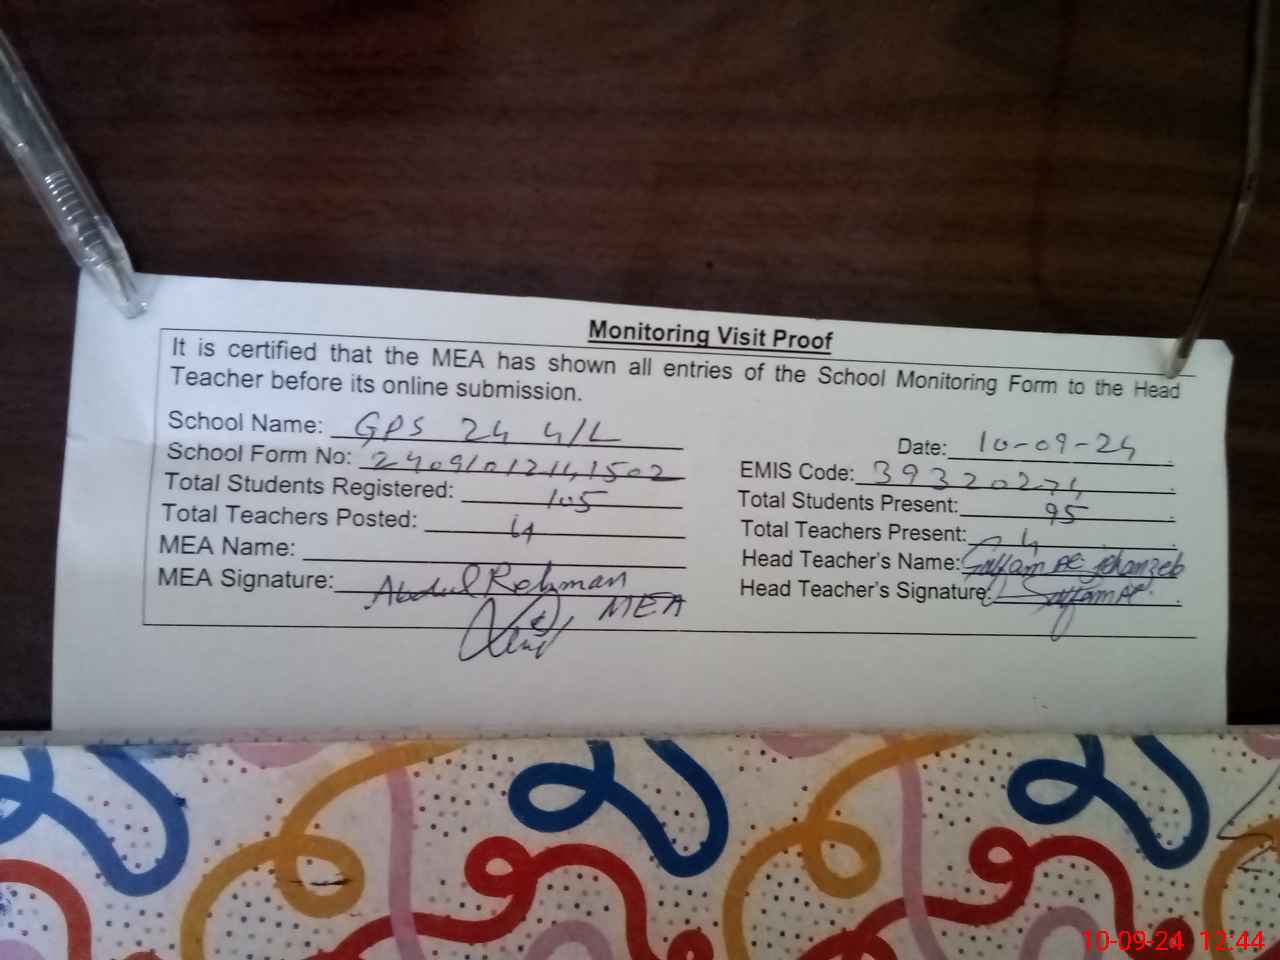 Monitoring Visit Proof
It is certified that the MEA has shown all entries of the School Monitoring Form to the Head
Teacher before its online submission.
School Name: GPS 24 4/L
Date: 10-09-24
School Form No:
EMIS Code: 39320274
Total Students Registered: 105
Total Students Present: 95
Total Teachers Posted:
Total Teachers Present: 4
MEA Name:
Head Teacher's Name: Jehanzeb
MEA Signature: Abdul Rehman
Head Teacher's Signature:
MEA
10-09-24 12:44